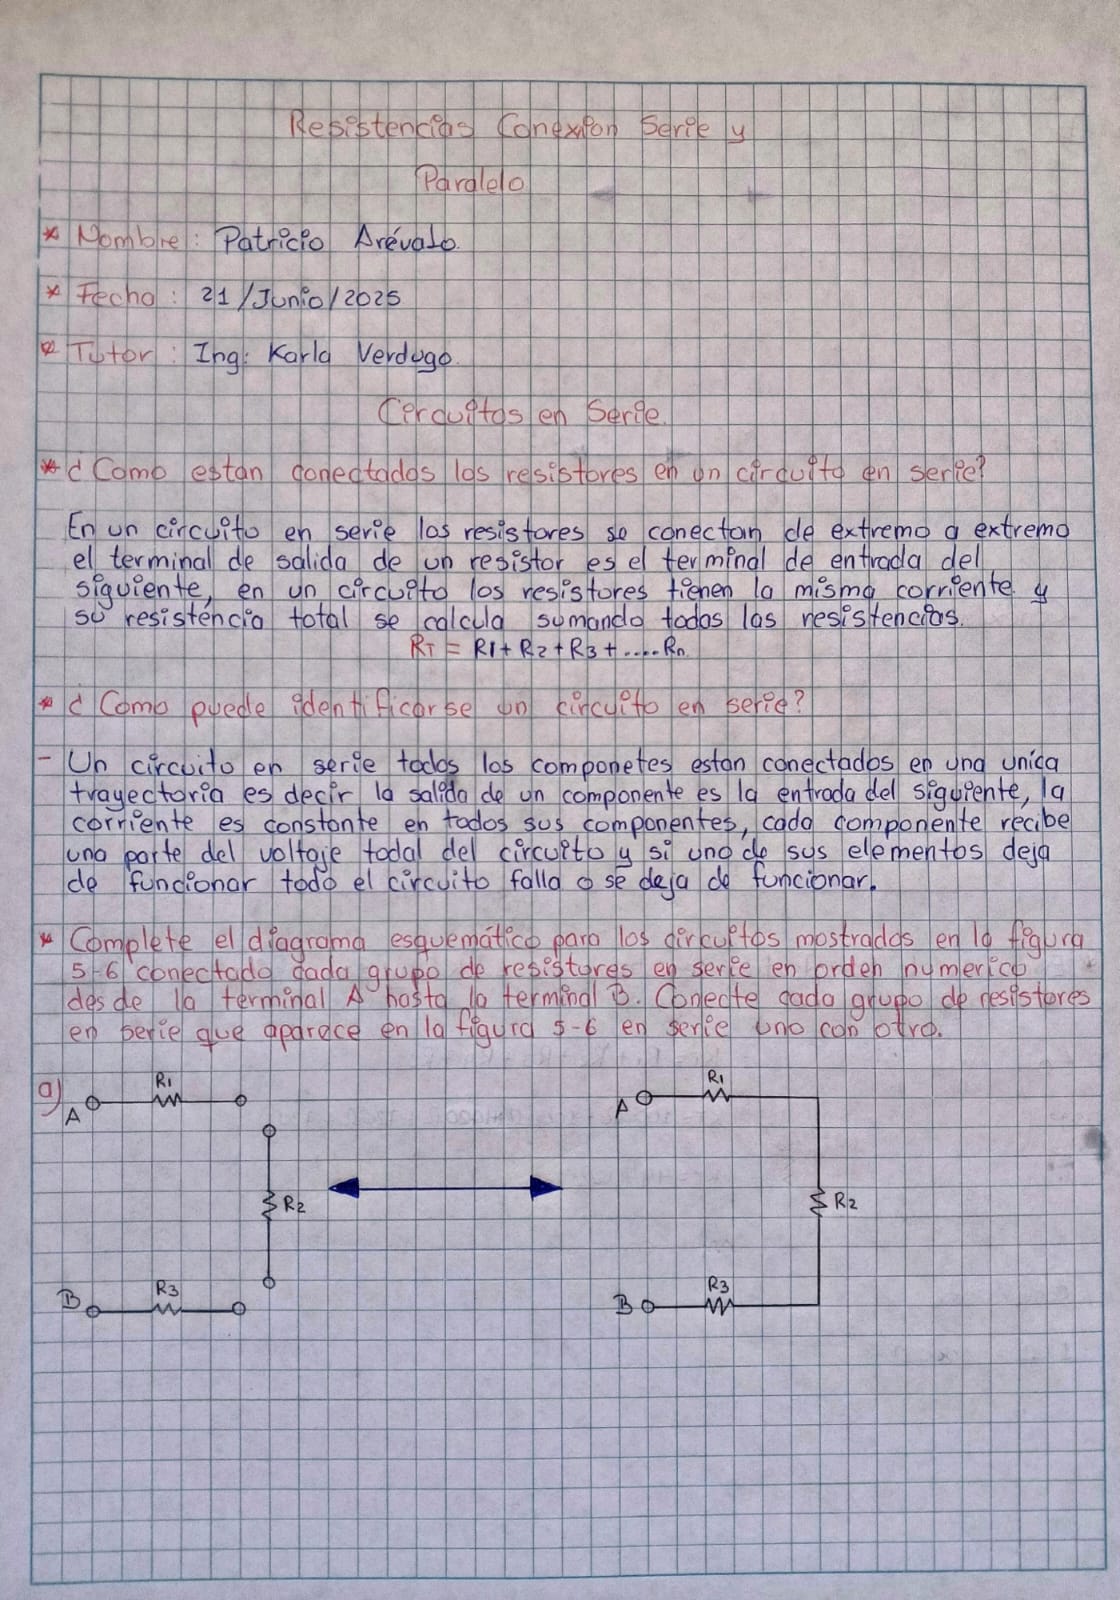 Resistencias Conexion Serie y
Paralelo
* Nombre: Patricio Arévalo.
* Fecha: 21/Junio/2025
* Tutor: Ing: Karla Verdugo.
Circuitos en Serie.
* ¿Como estan conectados los resistores en un circuito en serie?
En un circuito en serie los resistores se conectan de extremo a extremo
el terminal de salida de un resistor es el terminal de entrada del
siguiente, en un circuito los resistores tienen la misma corriente y
su resistencia total se calcula sumando todas las resistencias.
RT = R1 + R2 + R3 + ....Rn.
* ¿Como puede identificarse un circuito en serie?
- Un circuito en serie todos los componetes estan conectados en una unica
trayectoria es decir la salida de un componente es la entrada del siguiente, la
corriente es constante en todos sus componentes, cada componente recibe
una parte del voltaje todal del circuito y si uno de sus elementos deja
de funcionar todo el circuito falla o se deja de funcionar.
* Complete el diagrama esquemático para los circuitos mostrados en la figura
5-6 conectado cada grupo de resistores en serie en orden numerico
desde la terminal A hasta la terminal B. Conecte cada grupo de resistores
en serie que aparece en la figura 5-6 en serie uno con otro.
a)
A R1
R2
B R3
A R1
R2
B R3